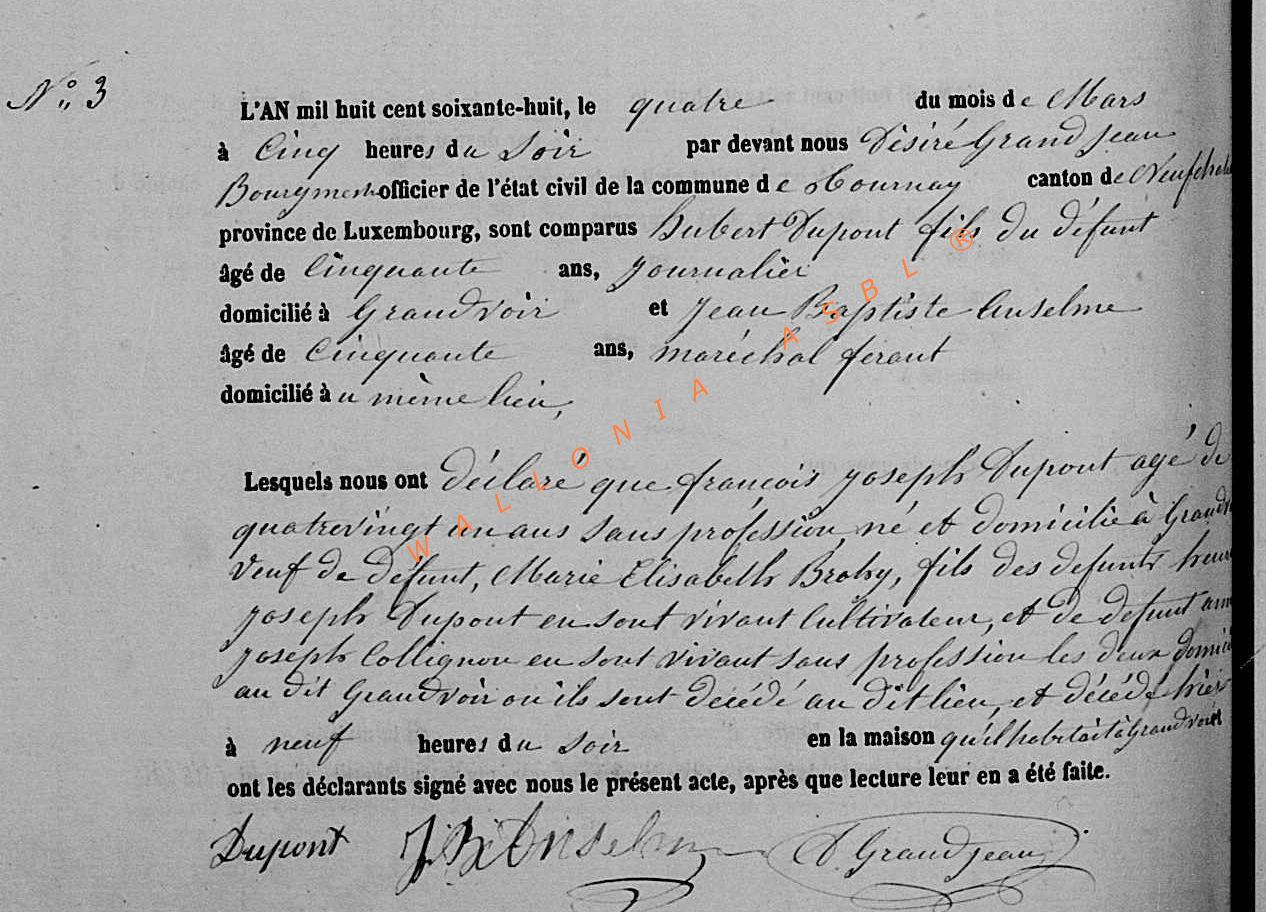 N° 3
L'AN mil huit cent soixante-huit, le quatre du mois de Mars
à Cinq heures du Soir par devant nous Désiré Grandjean
Bourgmestre officier de l'état civil de la commune de Tournay canton de Neufchateau
province de Luxembourg, sont comparus hubert Dupont fils du défunt
âgé de Cinquante ans, Journalier
domicilié à Grandvoir et Jean Baptiste Anselme
âgé de Cinquante ans, maréchal ferant
domicilié àu même lieu,
Lesquels nous ont déclaré que françois joseph Dupont agé de
quatrevingt un ans sans profession, né et domicilié à Grandv
veuf de défunt, Marie Elisabeth Brohy, fils des defunts henri
joseph Dupont en sont vivant Cultivateur, et de defunt ann
joseph Collignon en sont vivant sans profession les deux domici
au dit Grandvoir ou ils sont décédé au dit lieu, et décédé hier
à neuf heures du soir en la maison qu'il habitait à Grandvoir et
ont les déclarants signé avec nous le présent acte, après que lecture leur en a été faite.
Dupont J. B. Anselme D. Grandjean
WALLONIA ASBL ®